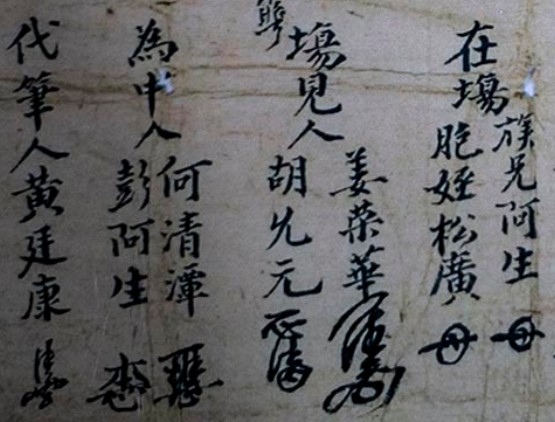 在塲
族兄阿生
胞姪松廣
塲見人
姜荣華
胡允元
為中人
何清潭
彭阿生
代筆人黃廷康